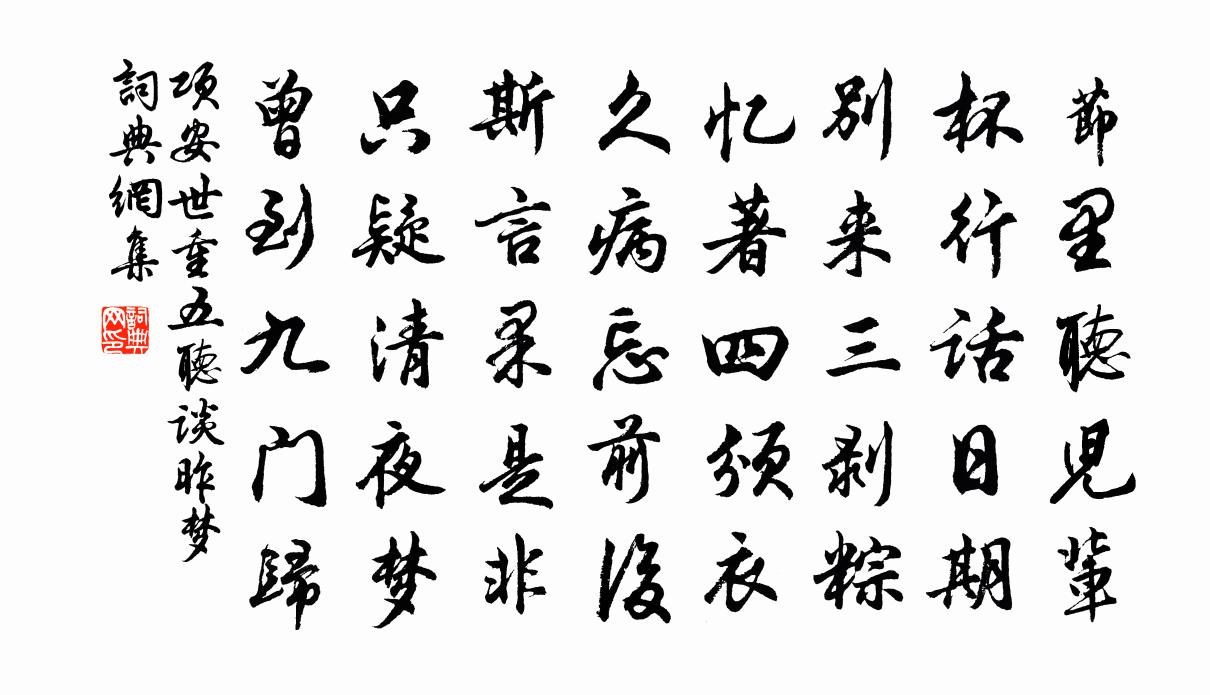 節里聽児輩
杯行話日期
別来三剥粽
忆著四頒衣
久病忘前後
斯言果是非
只疑清夜梦
曾到九门歸
项安世重五聽谈昨梦
詞典網集
詞典网印